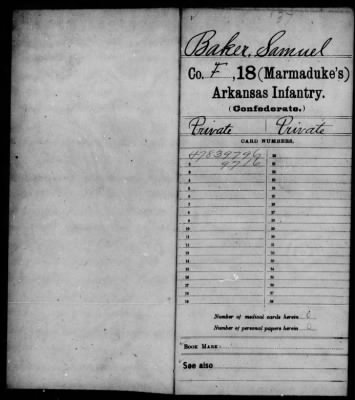 Baker, Samuel
Co. F, 18 (Marmaduke's)
Arkansas Infantry.
(Confederate.)
Private Private
CARD NUMBERS.
1 47839796 20
2 9716 21
3 22
4 23
5 24
6 25
7 26
8 27
9 28
10 29
11 30
12 31
13 32
14 33
15 34
16 35
17 36
18 37
19 38
Number of medical cards herein 0
Number of personal papers herein 0
BOOK MARK:
See also